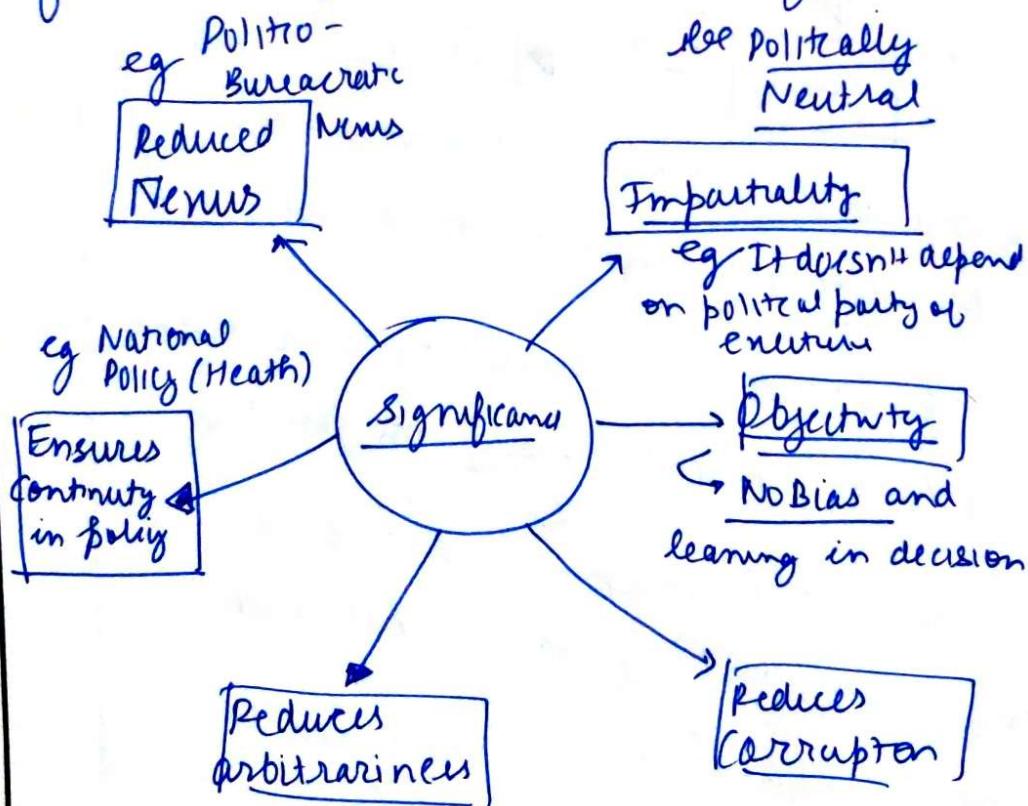 eg Politico -
Bureacratic
Nexus
Reduced
Nexus
Politcally
Neutral
Impartiality
eg It doesn't depend
on political party of
executive
eg National
Policy (Heath)
Ensures
Continuty
in policy
Significance
Objectivity
No Bias and
leaning in decision
Reduces
arbitrariness
Reduces
Corruption